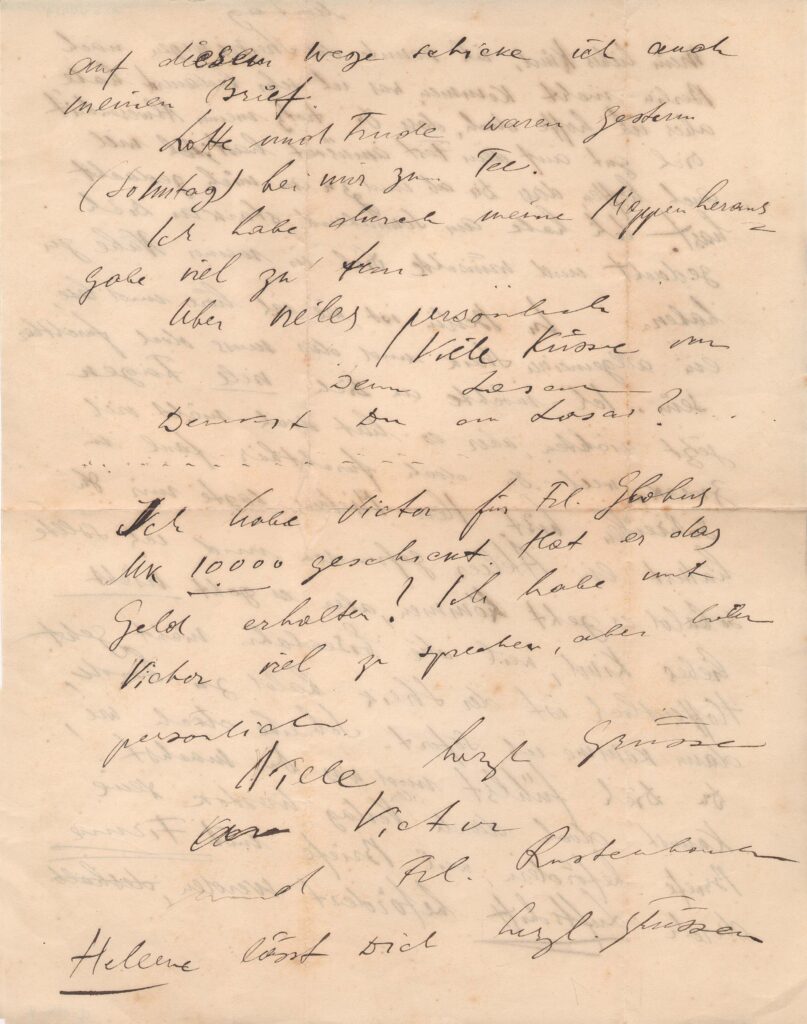 auf diesem Wege schicke ich auch
meinen Brief.
Lotte und Trude waren gestern
(Sonntag) bei mir zum Tee.
Ich habe durch meine Mappenheraus=
gabe viel zu tun.
Über vieles persönlich
Viele Küsse von
Dein
Du an
Ich habe Victor für Frl. Globus
MK 10000 geschickt. Hat er das
Geld erhalten? Ich habe mit
Victor viel zu sprechen, aber
persönlich
Viele herzl Grüsse
Victor
und Frl.
Helene lässt Dich herzl. grüssen